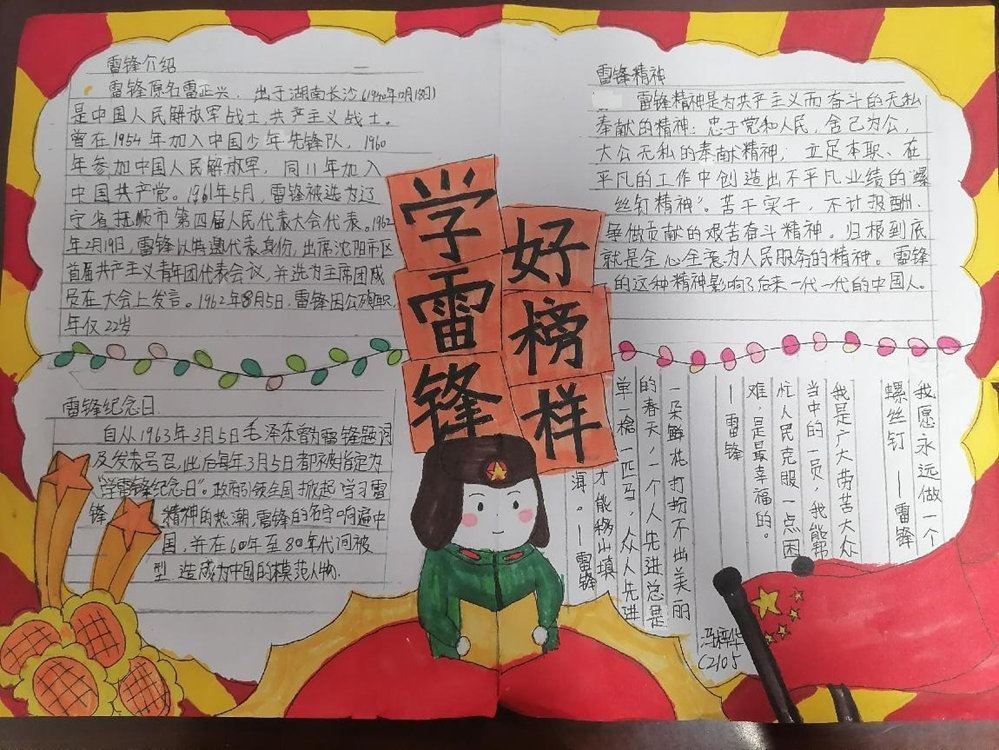 雷锋介绍
雷锋原名雷正兴,出于湖南长沙(1940年12月18日)
是中国人民解放军战士、共产主义战士。
曾在1954年加入中国少年先锋队,1960
年参加中国人民解放军,同11年加入
中国共产党。1961年5月,雷锋被选为辽
宁省抚顺市第四届人民代表大会代表。1962
年2月19日,雷锋以特邀代表身份,出席沈阳市区
首届共产主义青年团代表会议,并选为主席团成
员在大会上发言。1962年8月5日,雷锋因公殉职,
年仅22岁
雷锋精神
雷锋精神是为共产主义而奋斗的无私
奉献的精神;忠于党和人民,舍己为公,
大公无私的奉献精神;立足本职、在
平凡的工作中创造出不平凡业绩的“螺
丝钉精神”。苦干实干,不计报酬,
争做贡献的艰苦奋斗精神。归根到底
就是全心全意为人民服务的精神。雷锋
的这种精神影响了后来一代一代的中国人。
学雷锋
好榜样
雷锋纪念日
自从1963年3月5日毛泽东曾为雷锋题词
及发表号召,此后每年3月5日都被指定为
“学雷锋纪念日”。政府引领全国掀起“学习雷
锋精神的热潮,雷锋的名字响遍中
国,并在60年至80年代间被
型造成为中国的模范人物.
我愿永远做一个
螺丝钉 —雷锋
我是广大劳苦大众
当中的一员,我能帮
忙人民克服一点困
难,是最幸福的。
—雷锋
一朵鲜花打扮不出美丽
的春天,一个人先进总是
单一槍一匹马,众人先进
才能移山填
海。—雷锋
C2105